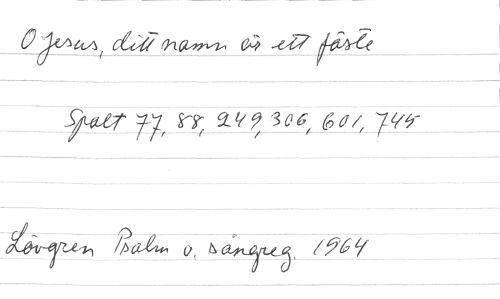 O Jesus, ditt namn är ett fäste
Spalt 77, 88, 249, 306, 601, 745
Lövgren Psalm o. sångreg. 1964